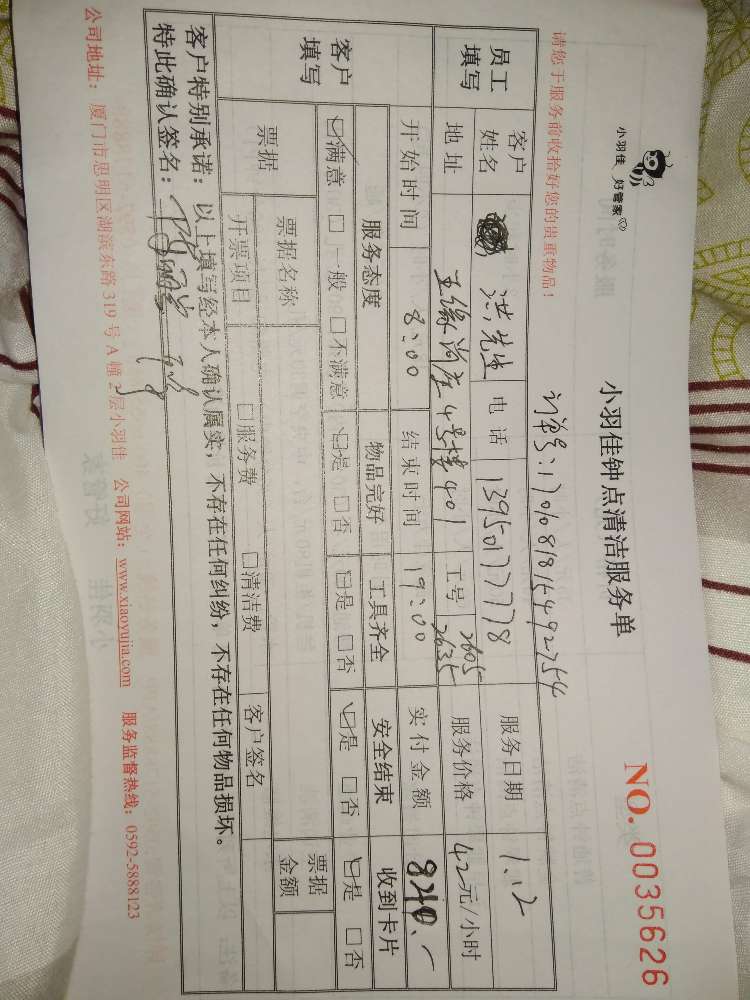 小羽佳 好管家
小羽佳钟点清洁服务单
NO. 0035626
请您于服务前收拾好您的贵重物品！
订单号:17010818164992754
员工填写 客户姓名 洪先生 电话 13950177778 服务日期 1.12
地址 4号楼401 工号 2605 2635 服务价格 42元/小时
开始时间 8:00 结束时间 19:00 实付金额
客户填写 服务态度 物品完好 工具齐全 安全结束 收到卡片
☑满意 □一般 □不满意 ☑是 □否 ☑是 □否 ☑是 □否 ☑是 □否
票据 票据名称 票据金额
开票项目 □服务费 □清洁费 客户签名
客户特别承诺：以上填写经本人确认属实，不存在任何纠纷，不存在任何物品损坏。
特此确认签名：
公司地址：厦门市思明区湖滨东路319号A幢2层小羽佳 公司网站：www.xiaoyujia.com 服务监督热线：0592-5888123